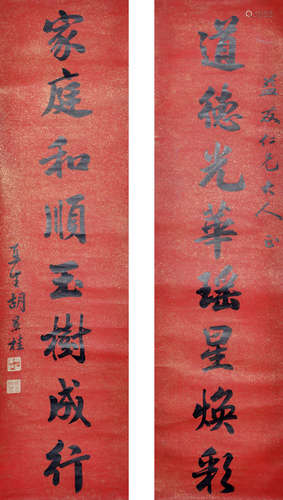 道德光華瑤星煥彩
仁兄大人
家庭和順玉樹成行
胡昇桂